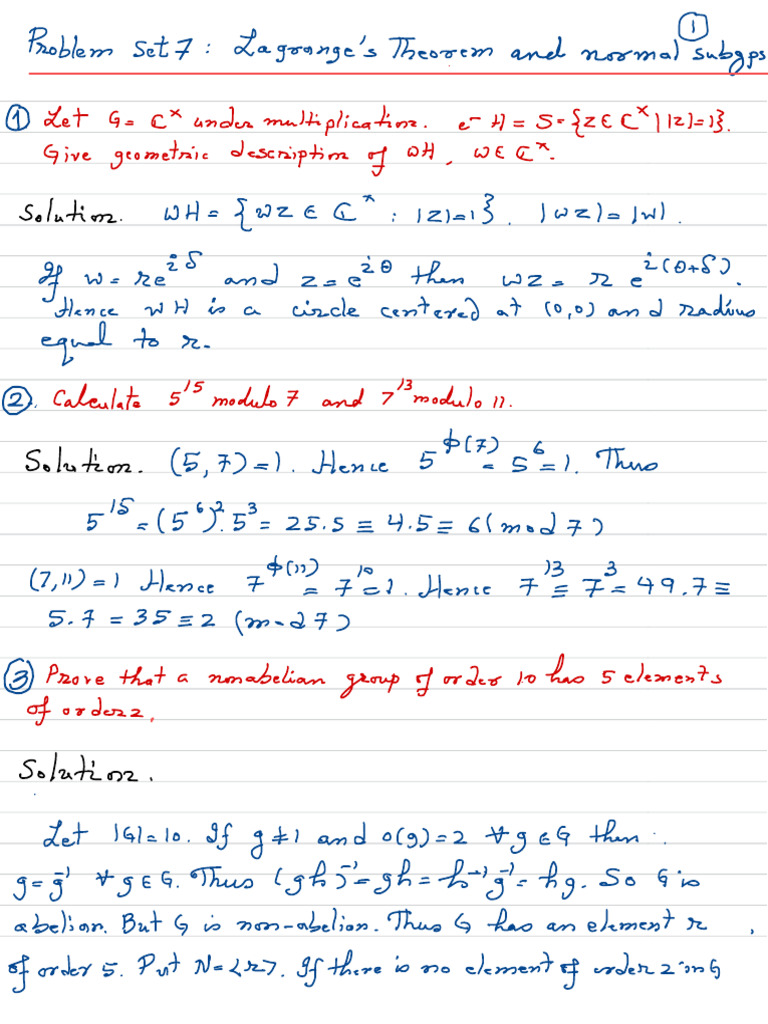 1
Problem Set 7 : Lagrange's Theorem and normal subgps
① Let G = ℂ^x under multiplication. e- H = S = {z ∈ ℂ^x | |z| = 1}.
Give geometric description of wH, w ∈ ℂ^x.
Solution. wH = {wz ∈ ℂ^x : |z| = 1}. |wz| = |w|.
If w = re^{iδ} and z = e^{iθ} then wz = r e^{i(θ+δ)}.
Hence wH is a circle centered at (0,0) and radius
equal to r.
②. Calculate 5^{15} modulo 7 and 7^{13} modulo 11.
Solution. (5,7) = 1. Hence 5^{φ(7)} = 5^6 = 1. Thus
5^{15} = (5^6)^2. 5^3 = 25.5 ≡ 4.5 ≡ 6 (mod 7)
(7,11) = 1 Hence 7^{φ(11)} = 7^{10} = 1. Hence 7^{13} ≡ 7^3 = 49.7 ≡
5.7 = 35 ≡ 2 (mod 7)
③ Prove that a nonabelian group of order 10 has 5 elements
of order 2.
Solution.
Let |G| = 10. If g ≠ 1 and o(g) = 2 ∀ g ∈ G then
g = g^{-1} ∀ g ∈ G. Thus (gh)^{-1} = gh = h^{-1}g^{-1} = hg. So G is
abelian. But G is non-abelian. Thus G has an element r
of order 5. Put N = <r>. If there is no element of order 2 in G